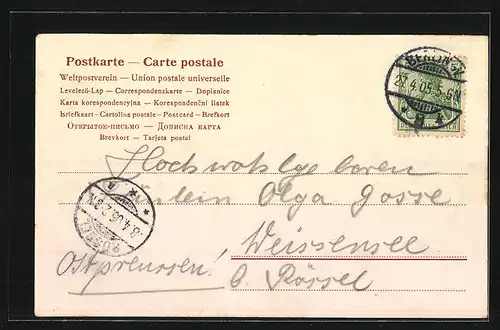 Postkarte — Carte postale
Weltpostverein — Union postale universelle
Levelező-Lap — Correspondenzkarte — Dopisnice
Karta korespondencyjna — Korespondenční lístek
Briefkaart — Cartolina postale — Postcard — Brefkort
Открытое-письмо — Дописна карта
Brevkort — Tarjeta postal
BERLIN
5-6N
Hochwohlgeboren
Fräulein Olga Gosse
Weissensee
b. Rössel
Ostpreussen!
RÖSSEL